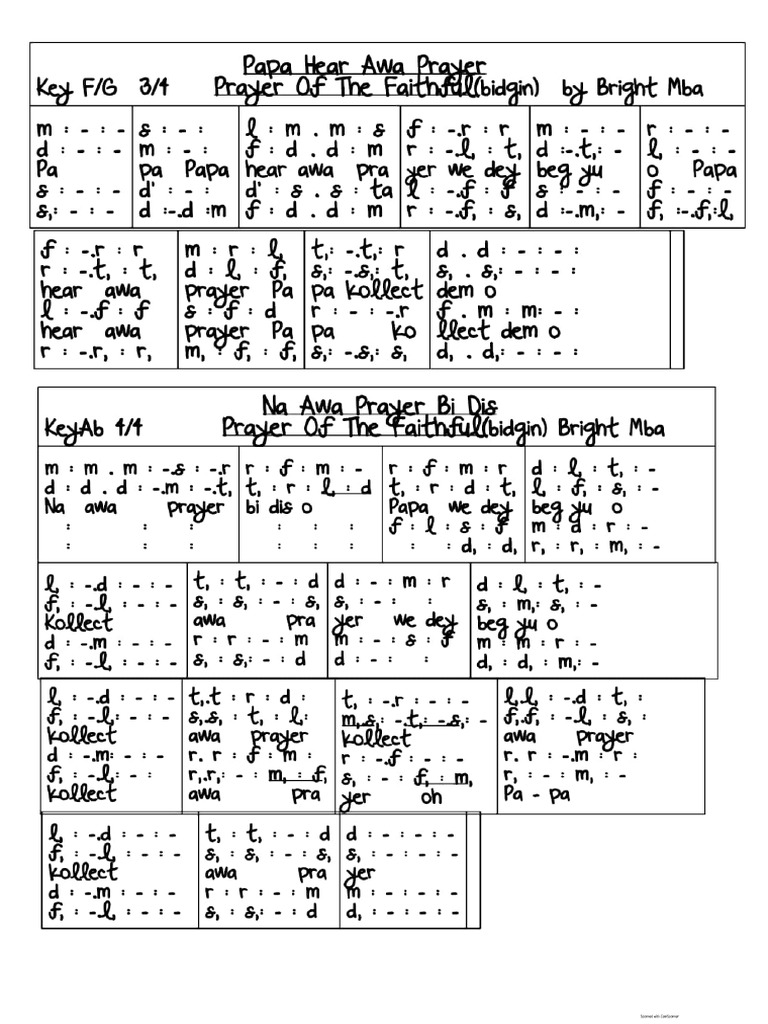 Papa Hear Awa Prayer
Key F/G 3/4 Prayer Of The Faithful(bidgin) by Bright Mba
m : - : - s : - : l : m . m : s f : -.r : r m : - : - r : - : -
d : - : - m : - : f : d . d : m r : -.l, : t, d :-.t,: - l, : - : -
Pa pa Papa hear awa pra yer we dey beg yu o Papa
s : - : - d' : - : d' : s . s : ta l : -.f : f s : - : - f : - : -
s,: - : - d :-.d :m f : d . d : m r : -.f, : s, d :-.m,: - f, :-.f,:l,
f : -.r : r m : r : l, t,: -.t,: r d . d : - : - :
r : -.t, : t, d : l, : f, s,: -.s,: t, s, . s,: - : - :
hear awa prayer Pa pa kollect dem o
l : -.f : f s : f : d r : - : -.r f . m : m: - :
hear awa prayer Pa pa ko llect dem o
r : -.r, : r, m, : f, : f, s,: -.s,: s, d, . d,: - : - :
Na Awa Prayer Bi Dis
Key:Ab 4/4 Prayer Of The Faithful(bidgin) Bright Mba
m : m . m : -.s : -.r r : f : m : - r : f : m : r d : l, : t, : -
d : d . d : -.m : -.t, t, : r : l, : d t, : r : d : t, l, : f, : s, : -
Na awa prayer bi dis o Papa we dey beg yu o
: : : : : : f : l : s : f m : d : r : -
: : : : : : : : d, : d, r, : r, : m, : -
l, : -.d : - : - t, : t, : - : d d : - : m : r d : l, : t, : -
f, : -.l, : - : - s, : s, : - : s, s, : - : : s, : m,: s, : -
Kollect awa pra yer we dey beg yu o
d : -.m : - : - r : r : - : m m : - : s : f m : m : r : -
f, : -.l, : - : - s, : s,: - : d d : - : : d, : d, : m,: -
l, : -.d : - : - t,.t : r : d : t, : -.r : - : - l,.l, : -.d : t, :
f, : -.l,: - : - s,.s, : t, : l,: m,.s,: -.t,: -.s,: - f,.f, : -.l : s, :
kollect awa prayer kollect awa prayer
d : -.m: - : - r. r : f : m : r : -.f : - : - r. r : -.m : r :
f, : -.l,: - : r,.r,: - : m, : f, s, : - : f, : m, r, : - : m, : -
kollect awa pra yer oh Pa - pa
l, : -.d : - : - t, : t, : - : d d : - : - : -
f, : -.l, : - : - s, : s, : - : s, s, : - : - : -
kollect awa pra yer
d : -.m : - : - r : r : - : m m : - : - : -
f, : -.l, : - : - s, : s,: - : d d, : - : - : -
Scanned with CamScanner